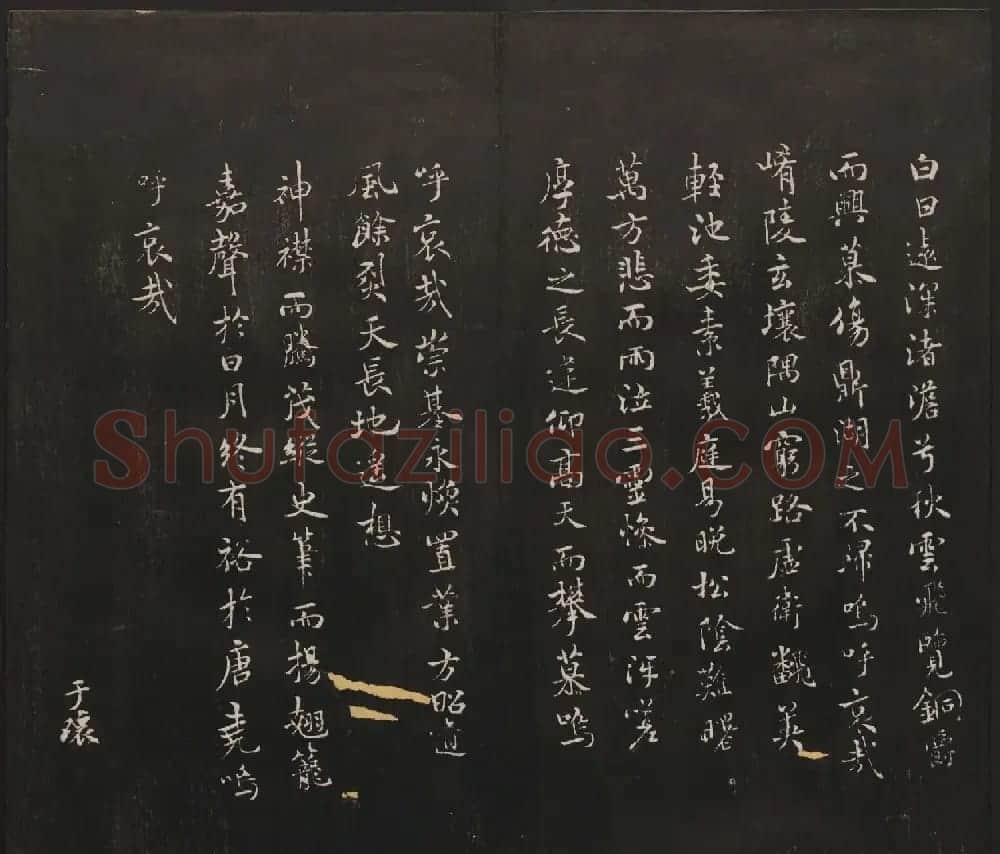 白日遠深渚澹兮秋雲飛覽銅爵
而興慕傷鼎湖之不歸嗚呼哀哉
崤陵玄壤隅山窮路虛衛翻英
輕池委素羲庭易晚松陰難曙
萬方悲而雨泣三靈慘而雲沍嗟
厚德之長違仰高天而攀慕嗚
呼哀哉崇基永煥置業方昭道
風餘烈天長地遙想
神襟而騰茂綴史筆而揚翹籠
嘉聲於日月終有裕於唐堯嗚
呼哀哉
于瓌
Shufaziliao.COM